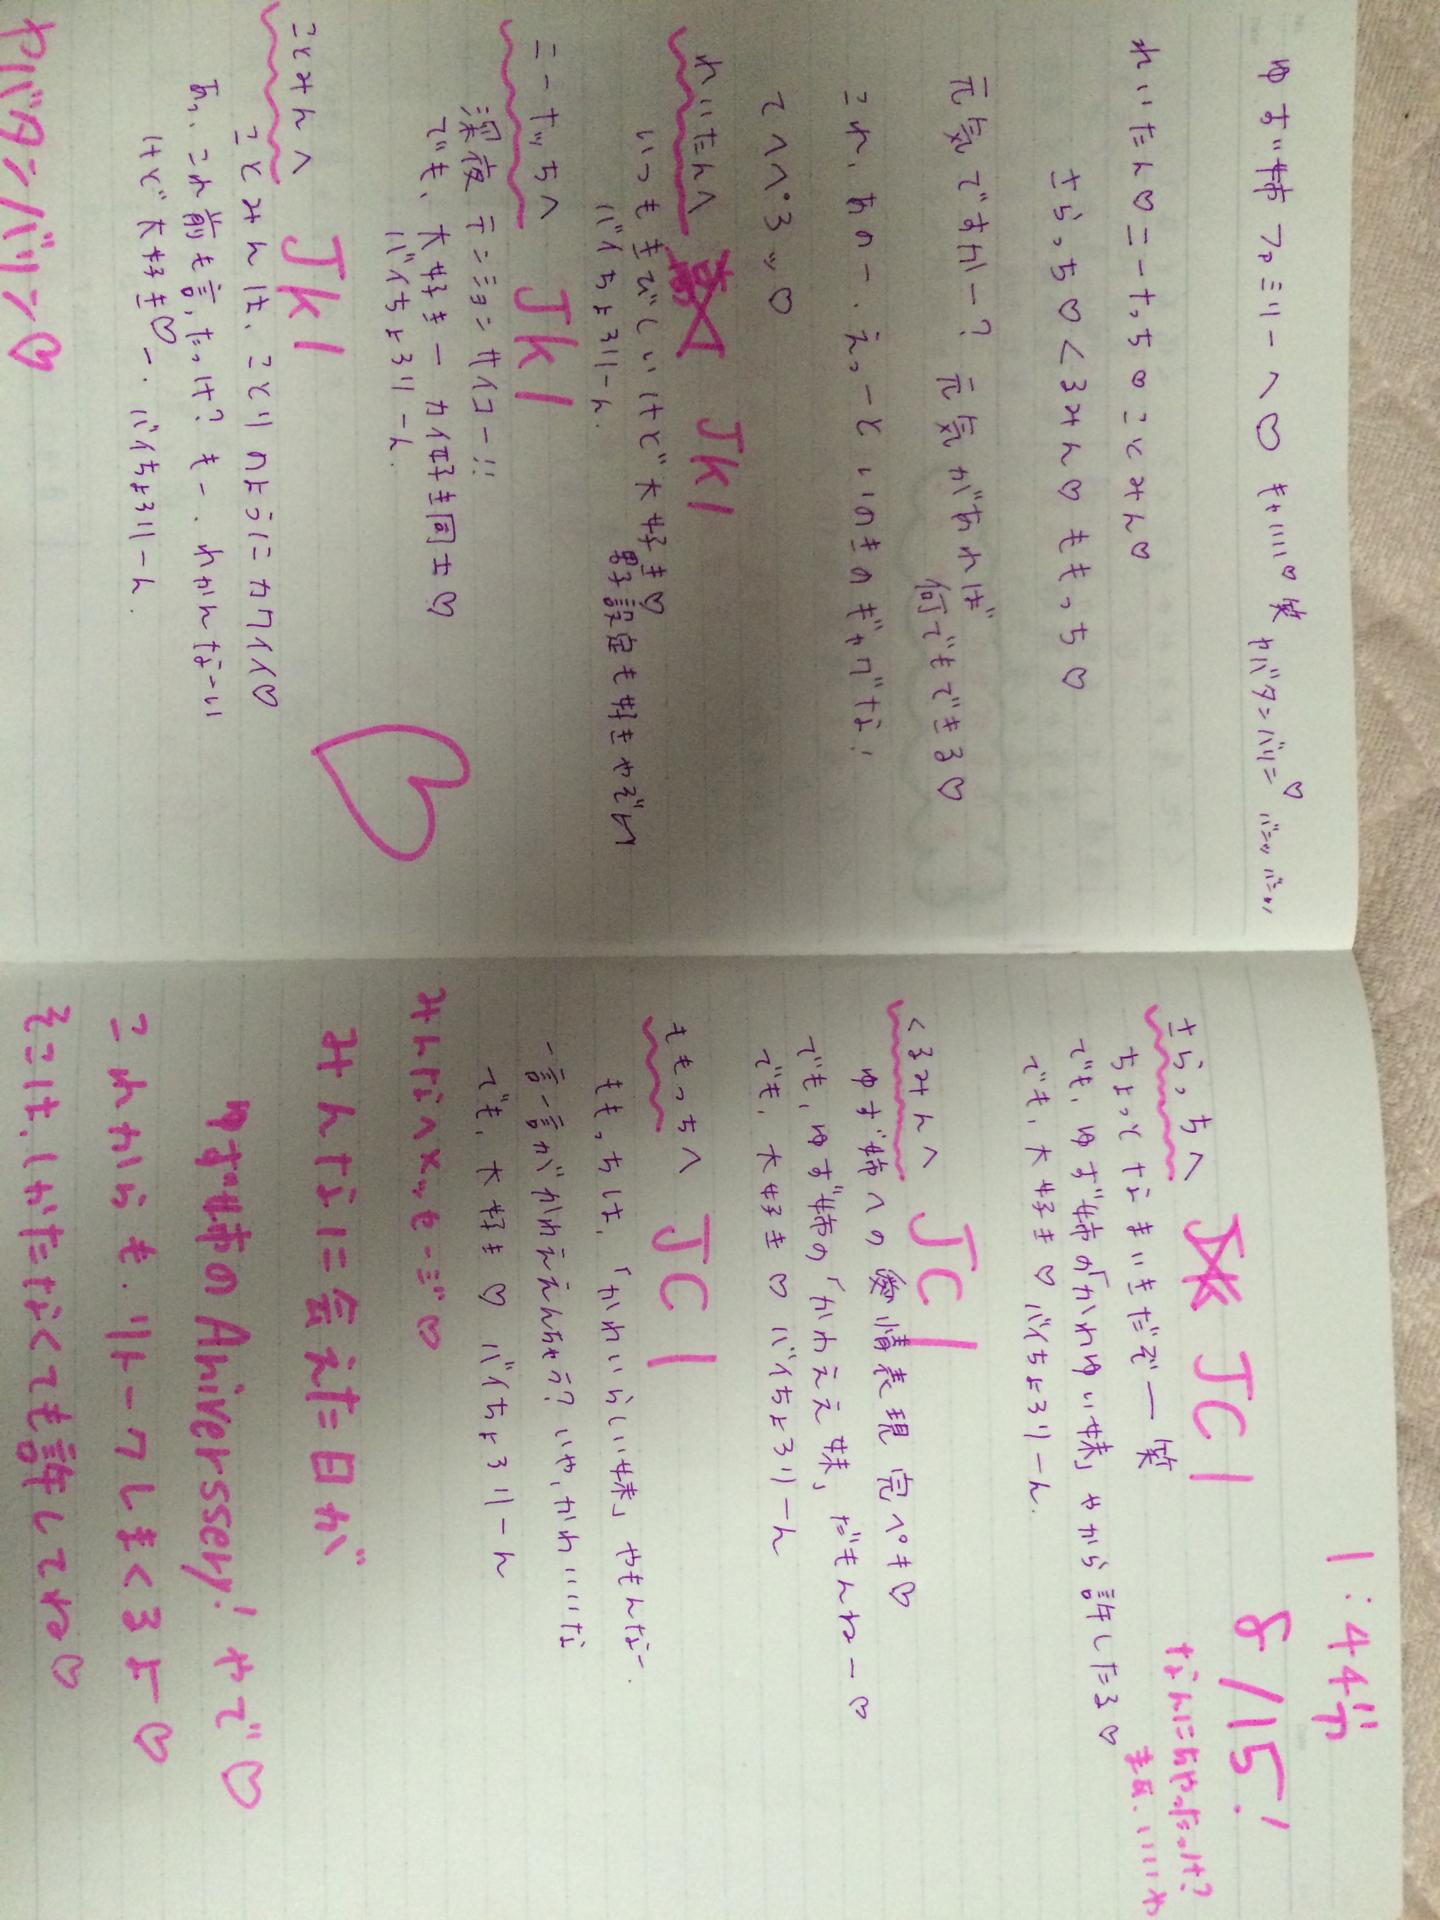 ゆず姉ファミリーへ♡ キャハハハ♡笑 ヤバタンバリン♡
れいたん♡ニーナっち♡ことみん♡
さらっち♡くるみん♡ももっち♡
元気ですかー? 元気があれば
何でもできる♡
これ、あのー、えっーと いのきのギャグな!
てへぺろッ♡
れいたんへ JK1
いつもきびしいけど大好き♡
男子設定も好きやぞい
バイちょろりーん。
ニーナッちへ JK1
深夜テンションサイコー!!
でも、大好きー カイ好き同士♡
バイちょろりーん。
ことみんへ JK1
ことみんは、ことりのようにカワイイ♡
あっ、これ前も言ったっけ? もー、わかんなーい
けど大好き♡ー。バイちょろりーん。
ヤバタンバリン♡
1:44分
8/15!
なんにちやったっけ?
まぁ、いいや
さらっちへ JC1
ちょっとなまいきだぞー笑
でも、ゆず姉の「かわゆい妹」やから許したる♡
でも、大好き♡ バイちょろりーん。
くるみんへ JC1
ゆず姉への愛情表現 完ぺき♡
でも、ゆず姉の「かわええ妹」だもんねー♡
でも、大好き♡ バイちょろりーん
ももっちへ JC1
ももっちは、「かわいらしい妹」やもんなー。
一言一言がかわええんちゃう? いや、かわいいな
でも、大好き♡ バイちょろりーん
みんなへメッセージ♡
みんなに会えた日が
ゆず姉のAniverssery! やで♡
これからも、リトークしまくるよー♡
そこは、しかたなくても許してね♡